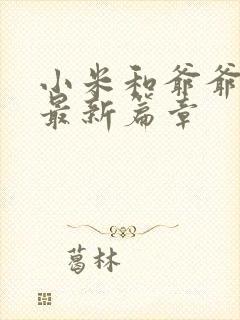 小米和爷爷
最新篇章
葛林